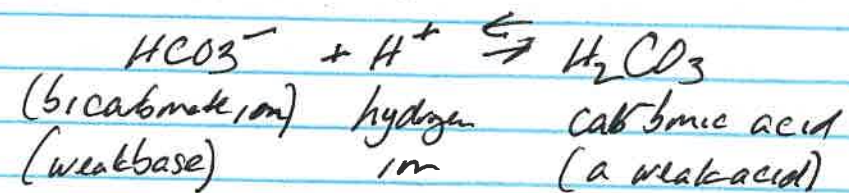 HCO3⁻ + H⁺ ⇌ H₂CO₃
(bicarbonate ion) hydrogen carbonic acid
(weak base) ion (a weak acid)